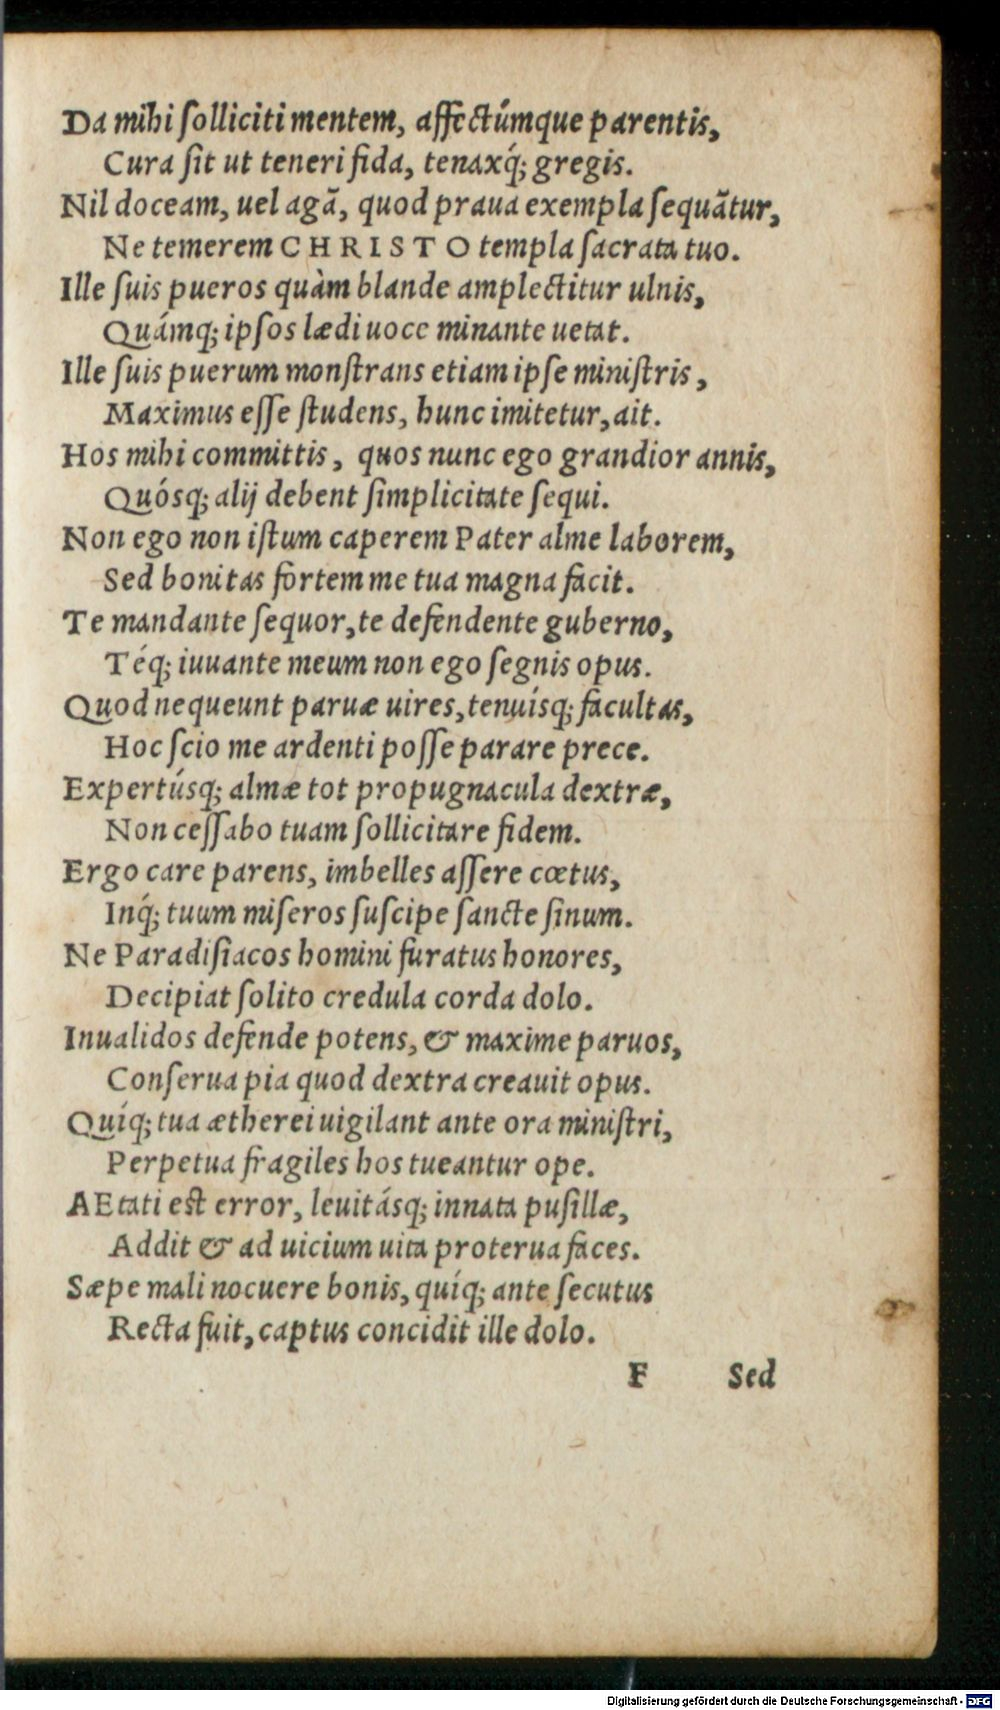 Da mihi ſolliciti mentem, affectúmque parentis,
Cura ſit ut teneri fida, tenaxq́; gregis.
Nil doceam, uel agã, quod praua exempla ſequãtur,
Ne temerem CHRISTO templa ſacrata tuo.
Ille ſuis pueros quàm blande amplectitur ulnis,
Quámq; ipſos lædi uoce minante uetat.
Ille ſuis puerum monſtrans etiam ipſe miniſtris,
Maximus eſſe ſtudens, hunc imitetur, ait.
Hos mihi committis, quos nunc ego grandior annis,
Quósq; alij debent ſimplicitate ſequi.
Non ego non iſtum caperem Pater alme laborem,
Sed bonitas fortem me tua magna facit.
Te mandante ſequor, te defendente guberno,
Téq; iuuante meum non ego ſegnis opus.
Quod nequeunt paruæ uires, tenuísq; facultas,
Hoc ſcio me ardenti poſſe parare prece.
Expertúsq; almæ tot propugnacula dextræ,
Non ceſſabo tuam ſollicitare fidem.
Ergo care parens, imbelles aſſere cœtus,
Inq́; tuum miſeros ſuſcipe ſancte ſinum.
Ne Paradiſiacos homini furatus honores,
Decipiat ſolito credula corda dolo.
Inualidos defende potens, & maxime paruos,
Conſerua pia quod dextra creauit opus.
Quíq; tua ætherei uigilant ante ora miniſtri,
Perpetua fragiles hos tueantur ope.
AEtati eſt error, leuitásq; innata puſillæ,
Addit & ad uicium uita proterua faces.
Sæpe mali nocuere bonis, quíq; ante ſecutus
Recta fuit, captus concidit ille dolo.
F Sed
Digitalisierung gefördert durch die Deutsche Forschungsgemeinschaft - DFG